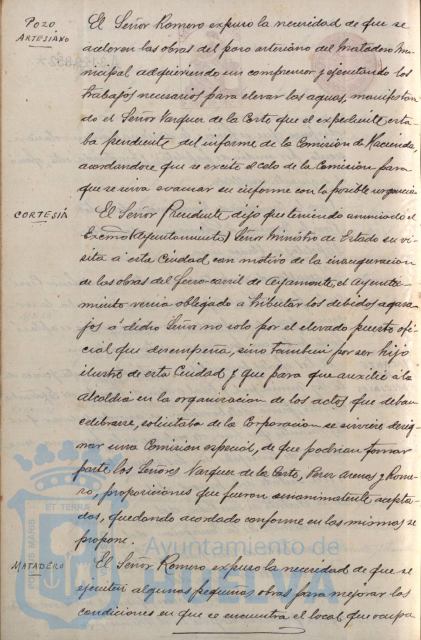 POZO
ARTESIANO
El Señor Romero expuso la necesidad de que se
aceleren las obras del pozo artesiano del Matadero Mu-
nicipal adquiriendo un compresor y ejecutando los
trabajos necesarios para elevar las aguas, manifestan-
do el Señor Vazquez de la Corte que el expediente esta-
ba pendiente del informe de la Comisión de Hacienda,
acordandose que se excite el celo de la Comision para
que se sirva evacuar su informe con la posible urgencia
CORTESIA
El Señor Presidente dijo que teniendo anunciado el
Excmo (Ayuntamiento) Señor Ministro de Estado su vi-
sita a esta Ciudad con motivo de la inauguracion
de las obras del ferro-carril de Ayamonte, el Ayunta-
miento venia obligado a tributar los debidos agasa-
jos á dicho Señor no solo por el elevado puesto ofi-
cial que desempeña, sino tambien por ser hijo
ilustre de esta Ciudad y que para que auxilie á la
alcaldia en la organizacion de los actos que deban
celebrarse, solicitaba de la Corporacion se sirviese desig-
nar una Comision especial, de que podrian formar
parte los Señores Vazquez de la Corte, Perez Arenas y Rome-
ro, proposiciones que fueron unanimemente acepta-
das, quedando acordado conforme en las mismas se
propone.
MATADERO
El Señor Romero expuso la necesidad de que se
ejecuten algunas pequeñas obras para mejorar las
condiciones en que se encuentra el local que ocupa
PORTUS MARIS
ET TERRÆ
Ayuntamiento de
HUELVA